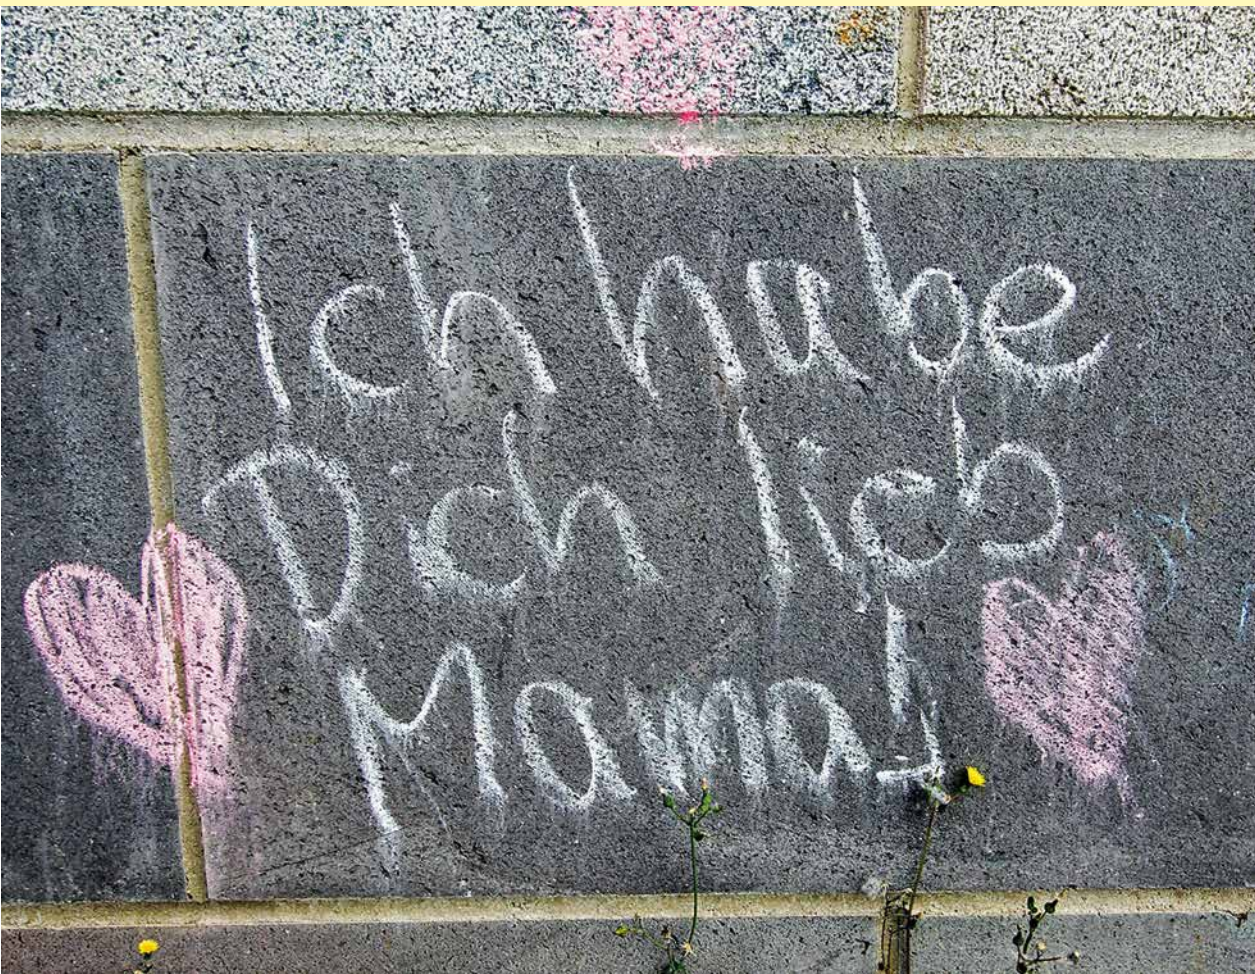 Ich habe
Dich lieb
Mama!